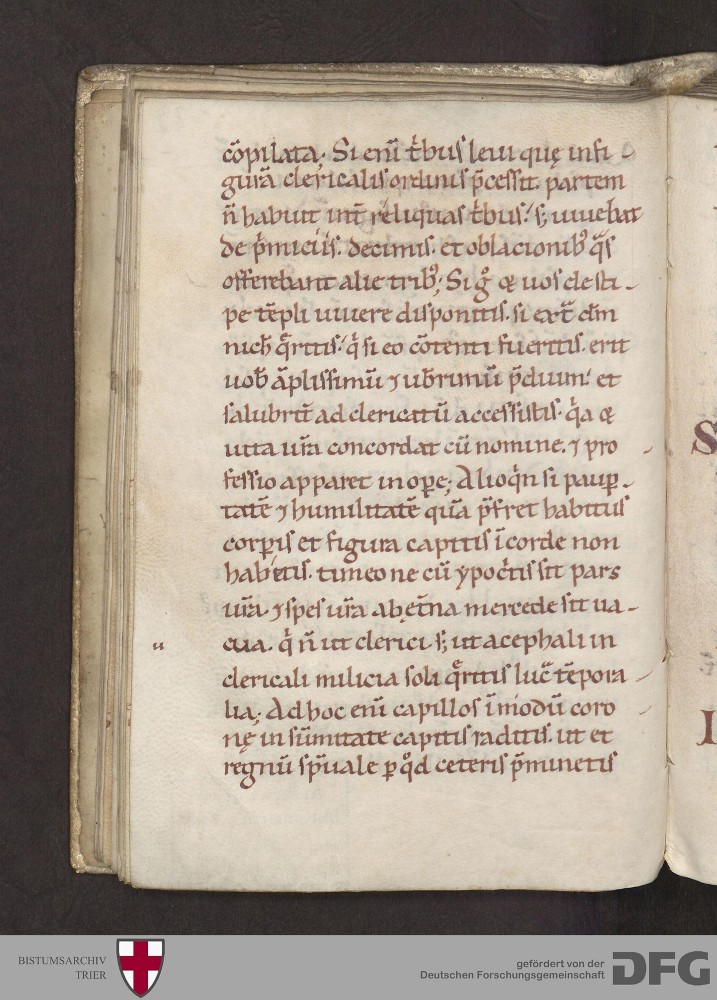 cõpilata; Si eni͂ t͛bus leui quę in fi-
gurã clericalis ordinis p̃cessit. partem
ñ habuit int̃ reliquas t͛bus; s; uiuebat
de p͛miciis. decimis. et oblacionib᷒ q̃s
offerebant alie trib᷒; Si g° & uos de sti-
pe tẽpli uiuere disponitis. si ext̃ dm̃
nich̃ q̃ritis. q͛ si eo cõtenti fueritis. erit
uob̃ ãplissimũ ⁊ ub̃rimũ p̃dium. et
salubrit̃ ad clericatũ accessistis. q͛a &
uita ur̃a concordat cũ nomine. ⁊ pro
fessio apparet in oꝑe; Alioq͛n si pauꝑ-
tatẽ ⁊ humilitatẽ quã p̃fret habitus
corꝑis et figura capitis ĩ corde non
habetis. timeo ne cũ ypoc͛tis sit pars
ur̃a. ⁊ spes ur̃a ab et̃na mercede sit ua-
cua. q͛ ñ ut clerici. s; ut acephali in
clericali milicia soli q̃ritis luc̃ tẽpora
lia; Ad hoc eni͂ capillos ĩ modũ coro
nę in sũmitate capitis raditis. ut et
regnũ sp̃uale ꝑ q°d ceteris p̃minetis
BISTUMSARCHIV
TRIER
gefördert von der
Deutschen Forschungsgemeinschaft
DFG